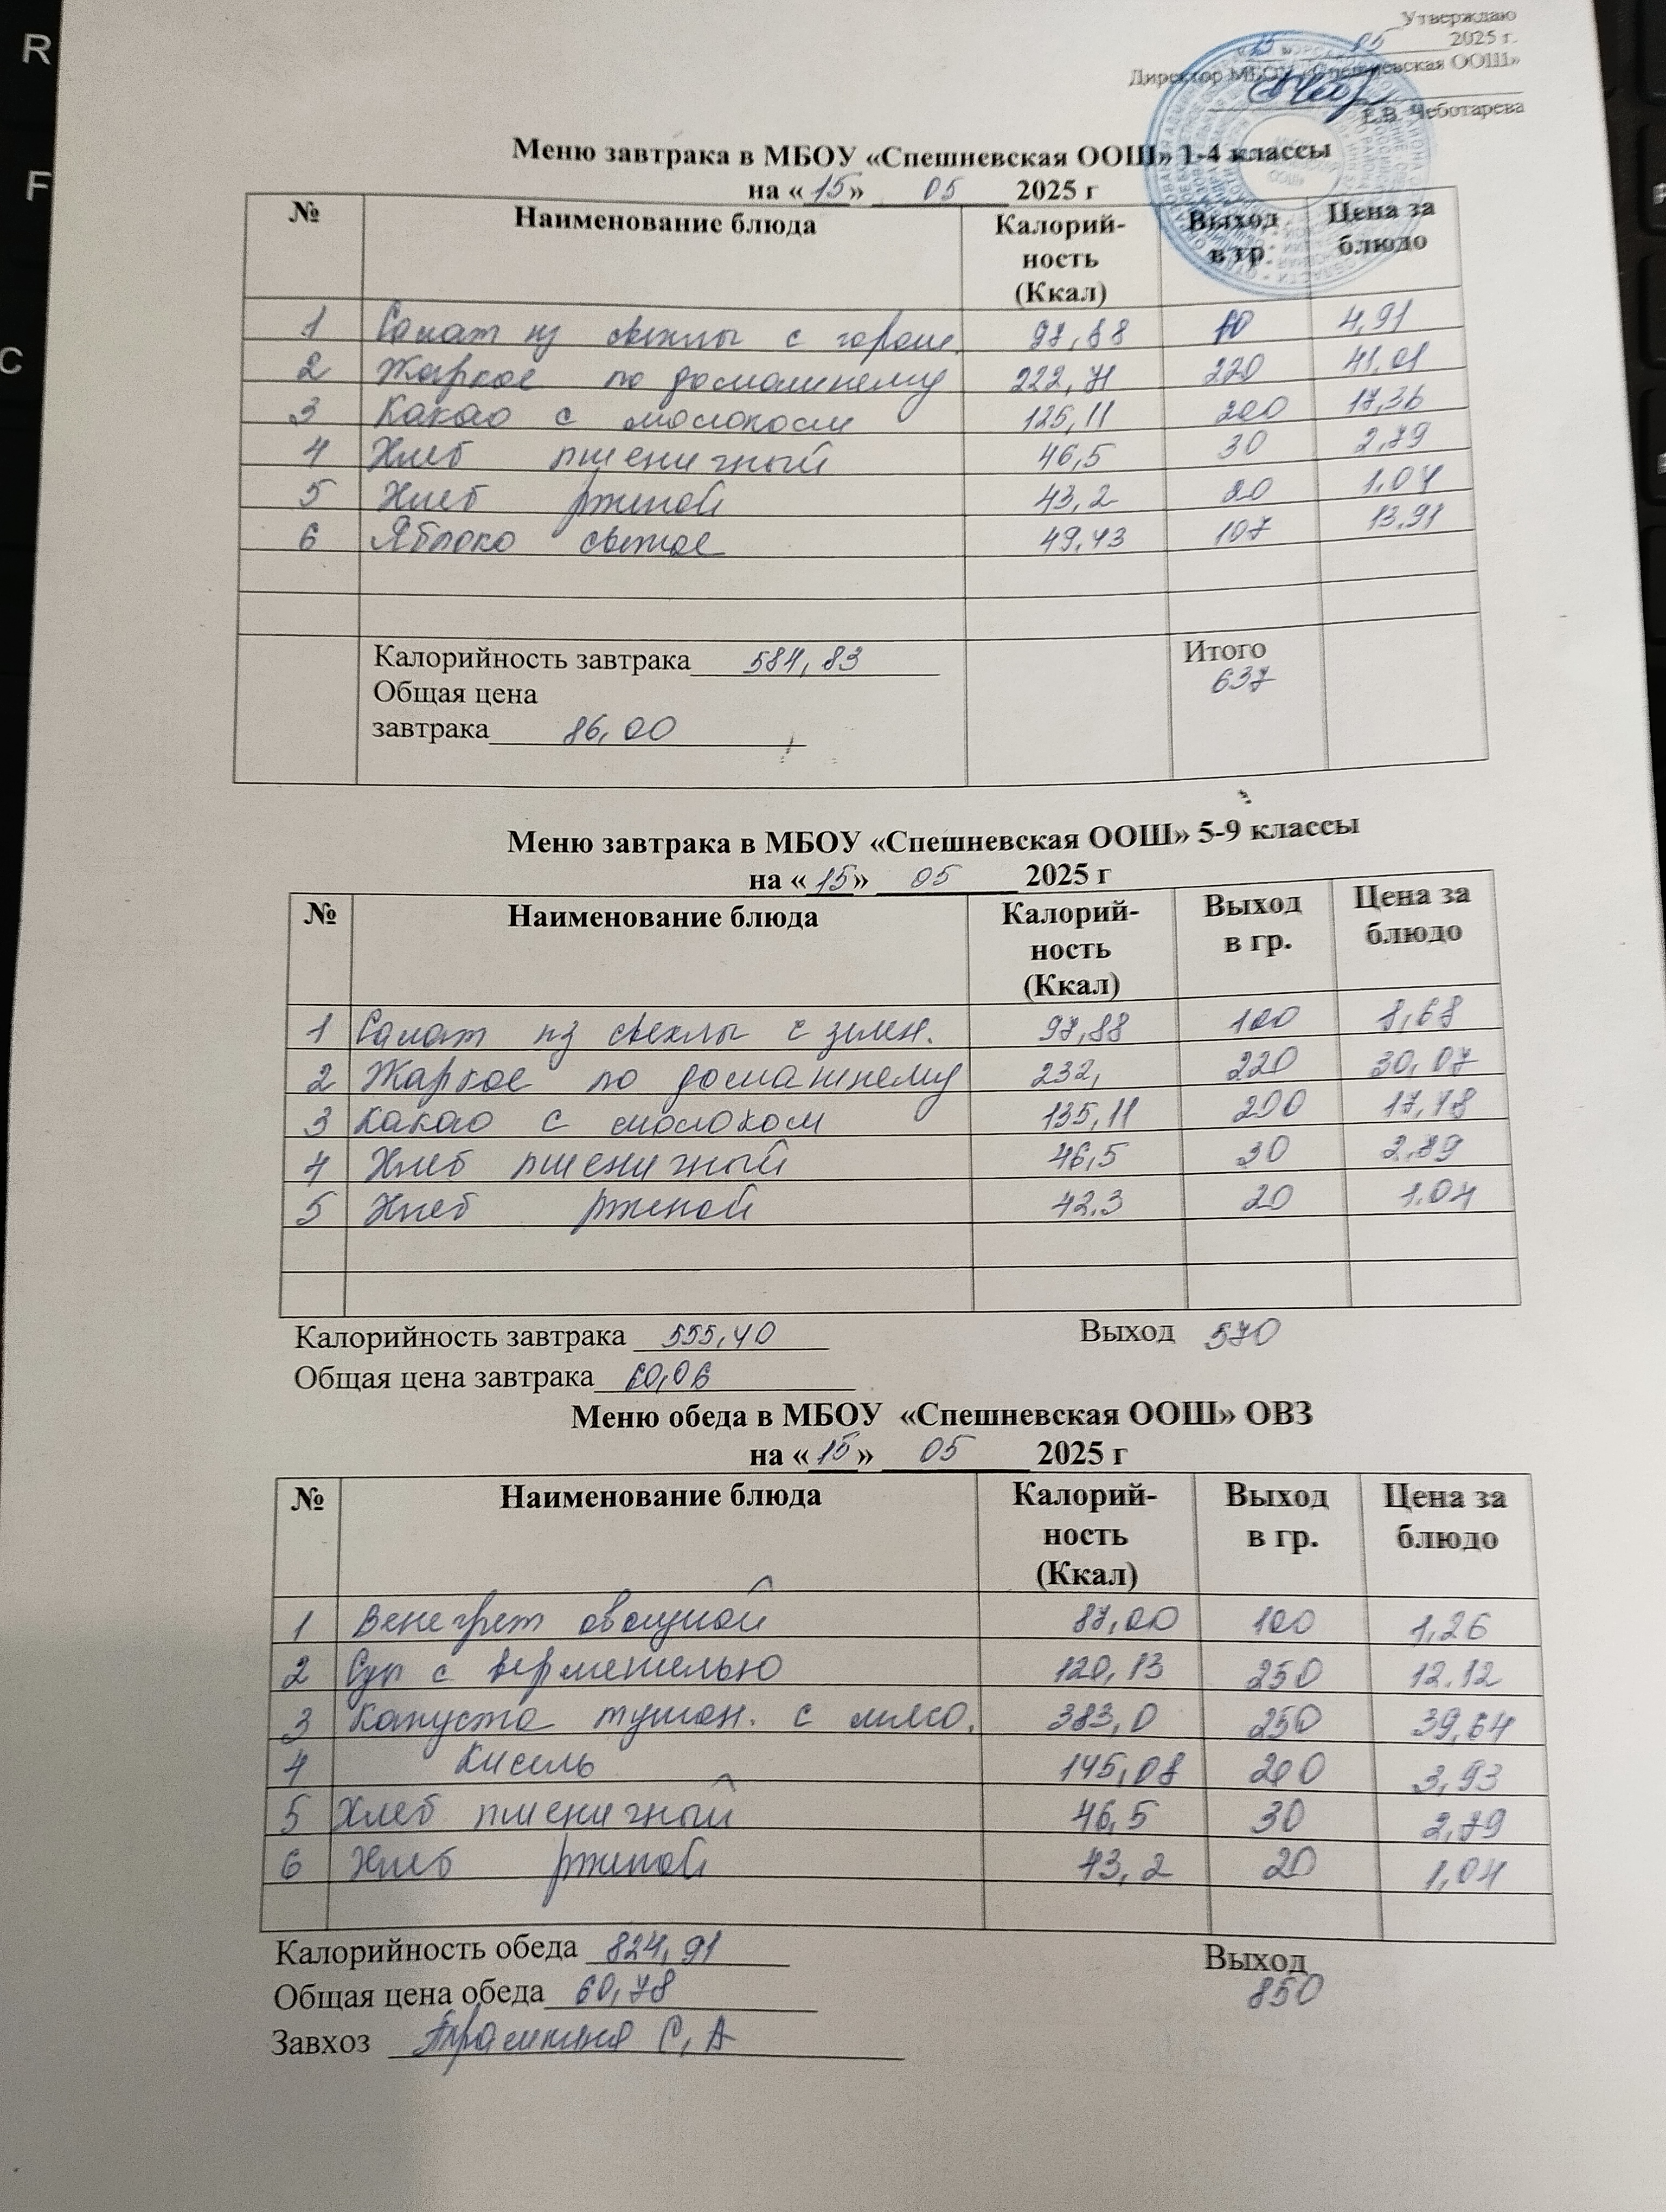 Утверждаю
«15» 05 2025 г.
Директор МБОУ «Спешневская ООШ»
Е.В. Чеботарева
Меню завтрака в МБОУ «Спешневская ООШ» 1-4 классы
на «15» 05 2025 г
№ Наименование блюда Калорий-ность (Ккал) Выход в гр. Цена за блюдо
1 Салат из свеклы с горош. 97,88 60 4,91
2 Жаркое по домашнему 222,71 220 41,01
3 Какао с молоком 125,11 200 17,36
4 Хлеб пшеничный 46,5 30 2,79
5 Хлеб ржаной 43,2 20 1,04
6 Яблоко свежое 49,43 107 13,91
Калорийность завтрака 584,83 Итого
637
Общая цена
завтрака 86,00
Меню завтрака в МБОУ «Спешневская ООШ» 5-9 классы
на «15» 05 2025 г
№ Наименование блюда Калорий-ность (Ккал) Выход в гр. Цена за блюдо
1 Салат из свеклы с зелен. 97,88 100 8,68
2 Жаркое по домашнему 232, 220 30,07
3 Какао с молоком 135,11 200 17,48
4 Хлеб пшеничный 46,5 30 2,79
5 Хлеб ржаной 42,3 20 1.04
Калорийность завтрака 555,40 Выход 570
Общая цена завтрака 60,06
Меню обеда в МБОУ «Спешневская ООШ» ОВЗ
на «15» 05 2025 г
№ Наименование блюда Калорий-ность (Ккал) Выход в гр. Цена за блюдо
1 Венегрет овощной 87,00 100 1,26
2 Суп с вермешелью 120,13 250 12.12
3 Капуста тушен. с мясо. 383,0 250 39,64
4 Кисель 145,08 200 3,93
5 Хлеб пшеничный 46,5 30 2,79
6 Хлеб ржаной 43,2 20 1,04
Калорийность обеда 824,91 Выход
850
Общая цена обеда 60,78
Завхоз С,А